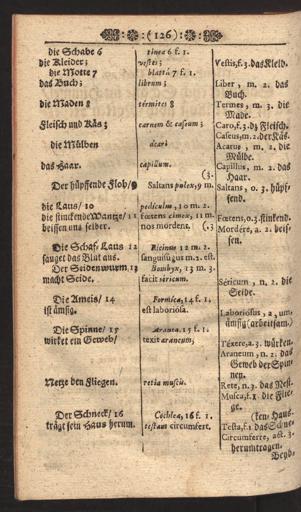 (126)
die Schabe 6
die Kleider;
die Motte 7
das Buch;
die Maden 8
Fleisch und Käs;
die Mülben
das Haar.
Der hüpffende Floh/9
die Laus/10
die stinckende Wantze/11
beissen uns selber.
Die Schaf-Laus 12
sauget das Blut aus.
Der Seidenwurm, 13
macht Seide.
Die Ameis/14
ist ämsig.
Die Spinne/15
wirket ein Geweb/
Netze den Fliegen.
Der Schneck/16
trägt sein Haus herum.
tinea 6 f. 1.
vestes;
blatta 7 f. 1.
librum;
termites 8
carnem & caseum;
acari
capillum.
(3.
Saltans pulex, 9 m.
pediculus, 10 m. 2.
fœtens cimex, 11 m.
nos mordent. (.3
Ricinus 12 m. 2.
sanguisugus m. 2. est.
Bombyx, 13 m. 3.
facit sericum.
Formica, 14 f. 1.
est laboriosa.
Aranea. 15 f. 1.
texit araneum,
retia muscis.
Cochlea, 16 f. 1.
testam circumfert.
Vestis, f. 3. das Kleid.
Liber, m. 2. das
Buch.
Termes, m. 3. die
Made.
Caro, f. 3. dz Fleisch.
Caseus, m. 2. der Käs.
Acarus, m. 2. die
Mülbe.
Capillus, m. 2. das
Haar.
Saltans, o. 3. hüpf-
fend.
Fœtens, o. 3. stinkend.
Mordére, a. 2. beis-
sen.
Séricum, n. 2. die
Seide.
Laboriosus, a, um,
ämsig (arbeitsam.)
Téxere, a. 3. würken.
Araneum, n. 2. das
Geweb der Spin-
nen.
Rete, n. 3. das Netz.
Musca, f. 1. die Flie-
ge.
(ken-Haus.
Testa, f. 1. das Schne-
Circumferre, act. 3.
herumtragen.
Beyd-